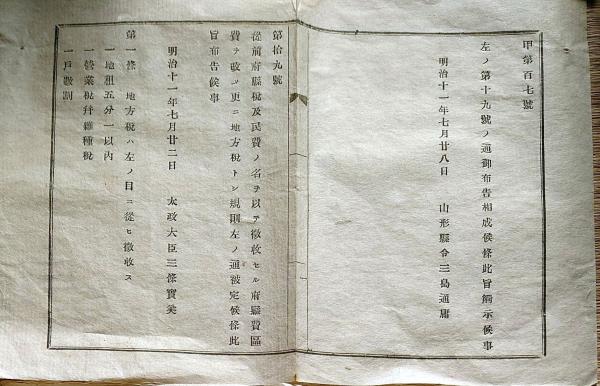 甲第百七號
左ノ第十九號ノ通御布告相成候條此旨觸示候事
明治十一年七月廿八日
山形縣令三島通庸
第拾九號
從前府縣税及民費ノ名ヲ以テ徵收セル府縣費區
費ヲ改メ更ニ地方税トシ規則左ノ通被定候條此
旨布告候事
明治十一年七月廿二日
太政大臣三條實美
第一條 地方税ハ左ノ目ニ從ヒ徵收ス
一地租五分一以内
一營業税幷雜種税
一戸數割